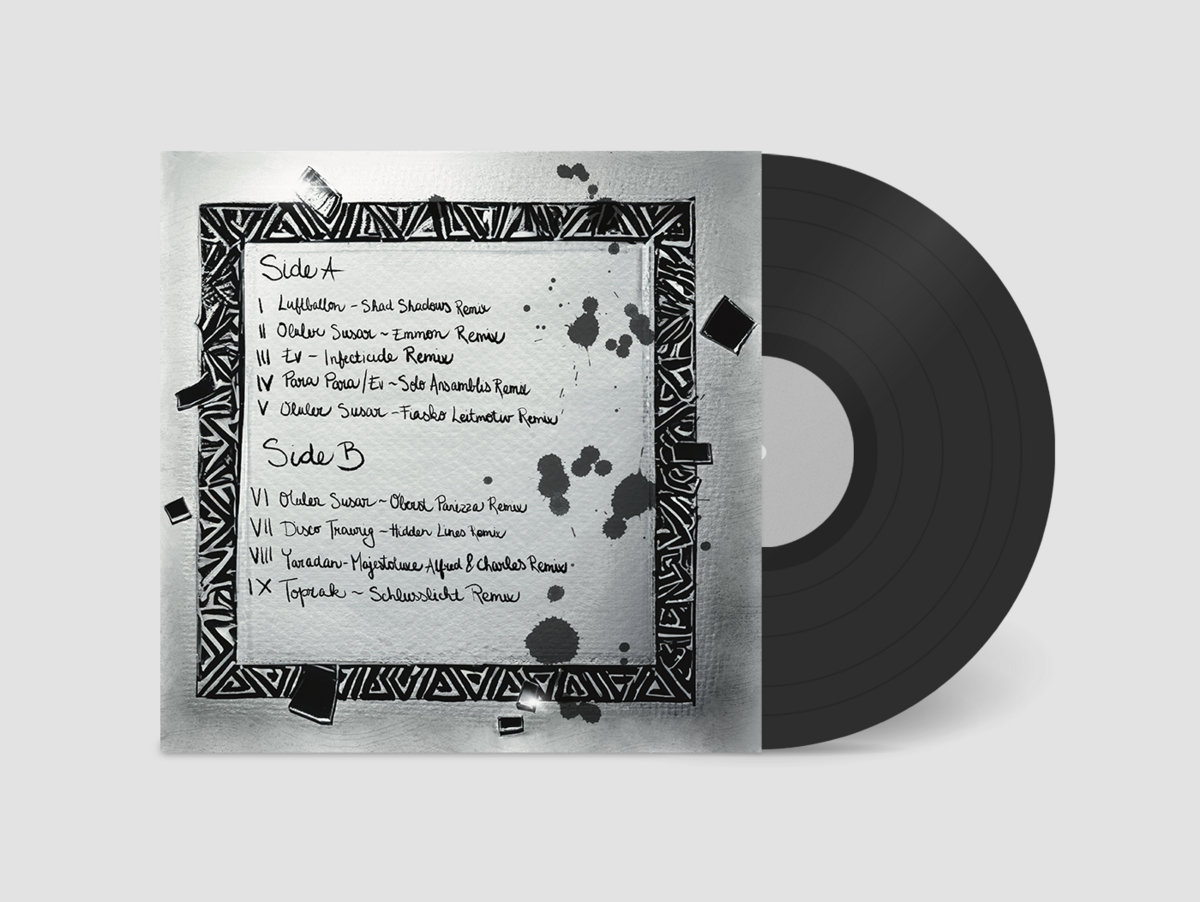 Side A
I Luftballon - Shad Shadows Remix
II Ölüler Susar ~ Emmon Remix
III Ev - Infecticide Remix
IV Para Para/Ev ~ Solo Ansamblis Remix
V Ölüler Susar - Fiasko Leitmotiv Remix
Side B
VI Ölüler Susar ~ Oberst Panizza Remix
VII Disco Traurig ~ Hidden Lines Remix
VIII Yaradan - Majestoluxe Alfred & Charles Remix
IX Toprak ~ Schlusslicht Remix